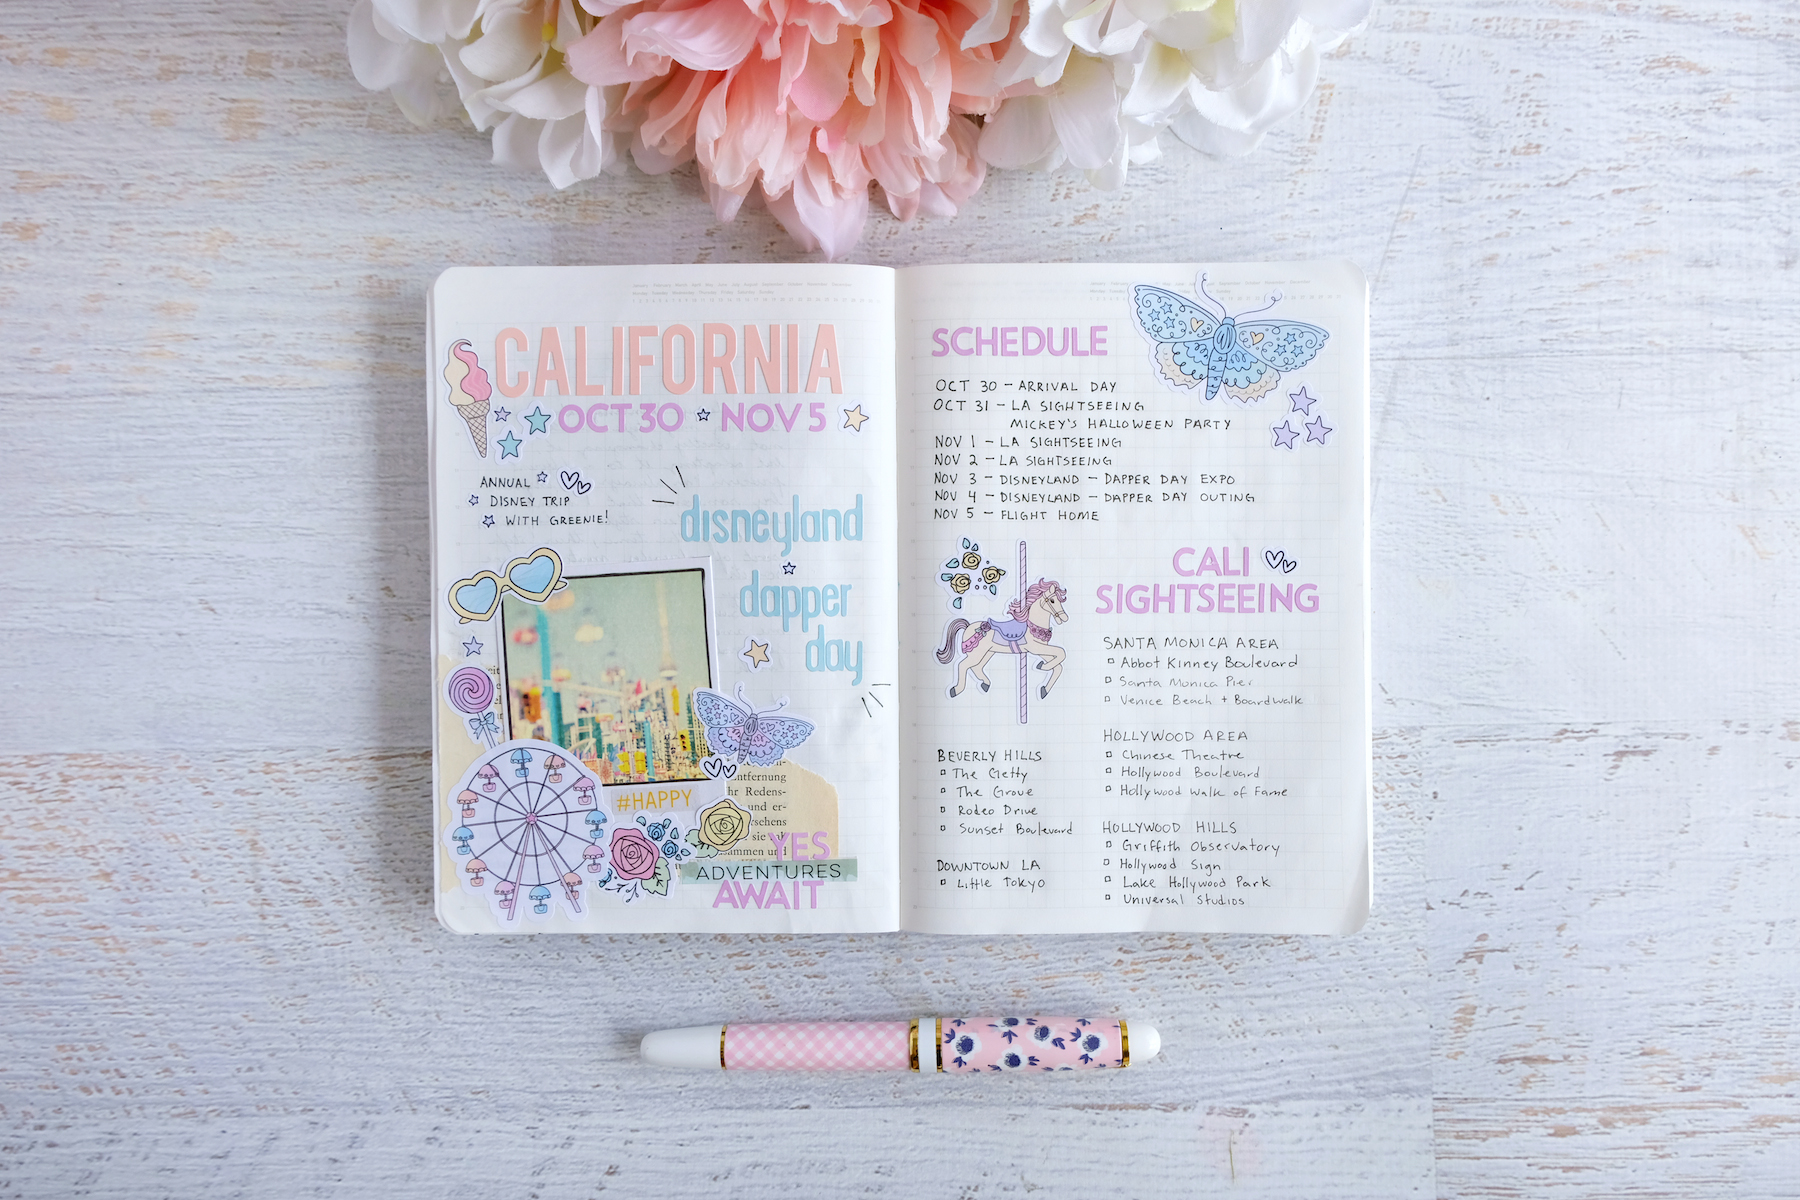 CALIFORNIA
OCT 30 NOV 5
ANNUAL
DISNEY TRIP
WITH GREENIE!
disneyland
dapper
day
#HAPPY
entfernung
hr Redens-
und er-
sie
sammen und
YES
ADVENTURES
AWAIT
SCHEDULE
OCT 30 - ARRIVAL DAY
OCT 31 - LA SIGHTSEEING
MICKEY'S HALLOWEEN PARTY
NOV 1 - LA SIGHTSEEING
NOV 2 - LA SIGHTSEEING
NOV 3 - DISNEYLAND - DAPPER DAY EXPO
NOV 4 - DISNEYLAND - DAPPER DAY OUTING
NOV 5 - FLIGHT HOME
CALI
SIGHTSEEING
SANTA MONICA AREA
Abbot Kinney Boulevard
Santa Monica Pier
Venice Beach + Boardwalk
HOLLYWOOD AREA
Chinese Theatre
Hollywood Boulevard
Hollywood Walk of Fame
HOLLYWOOD HILLS
Griffith Observatory
Hollywood Sign
Lake Hollywood Park
Universal Studios
BEVERLY HILLS
The Getty
The Grove
Rodeo Drive
Sunset Boulevard
DOWNTOWN LA
Little Tokyo